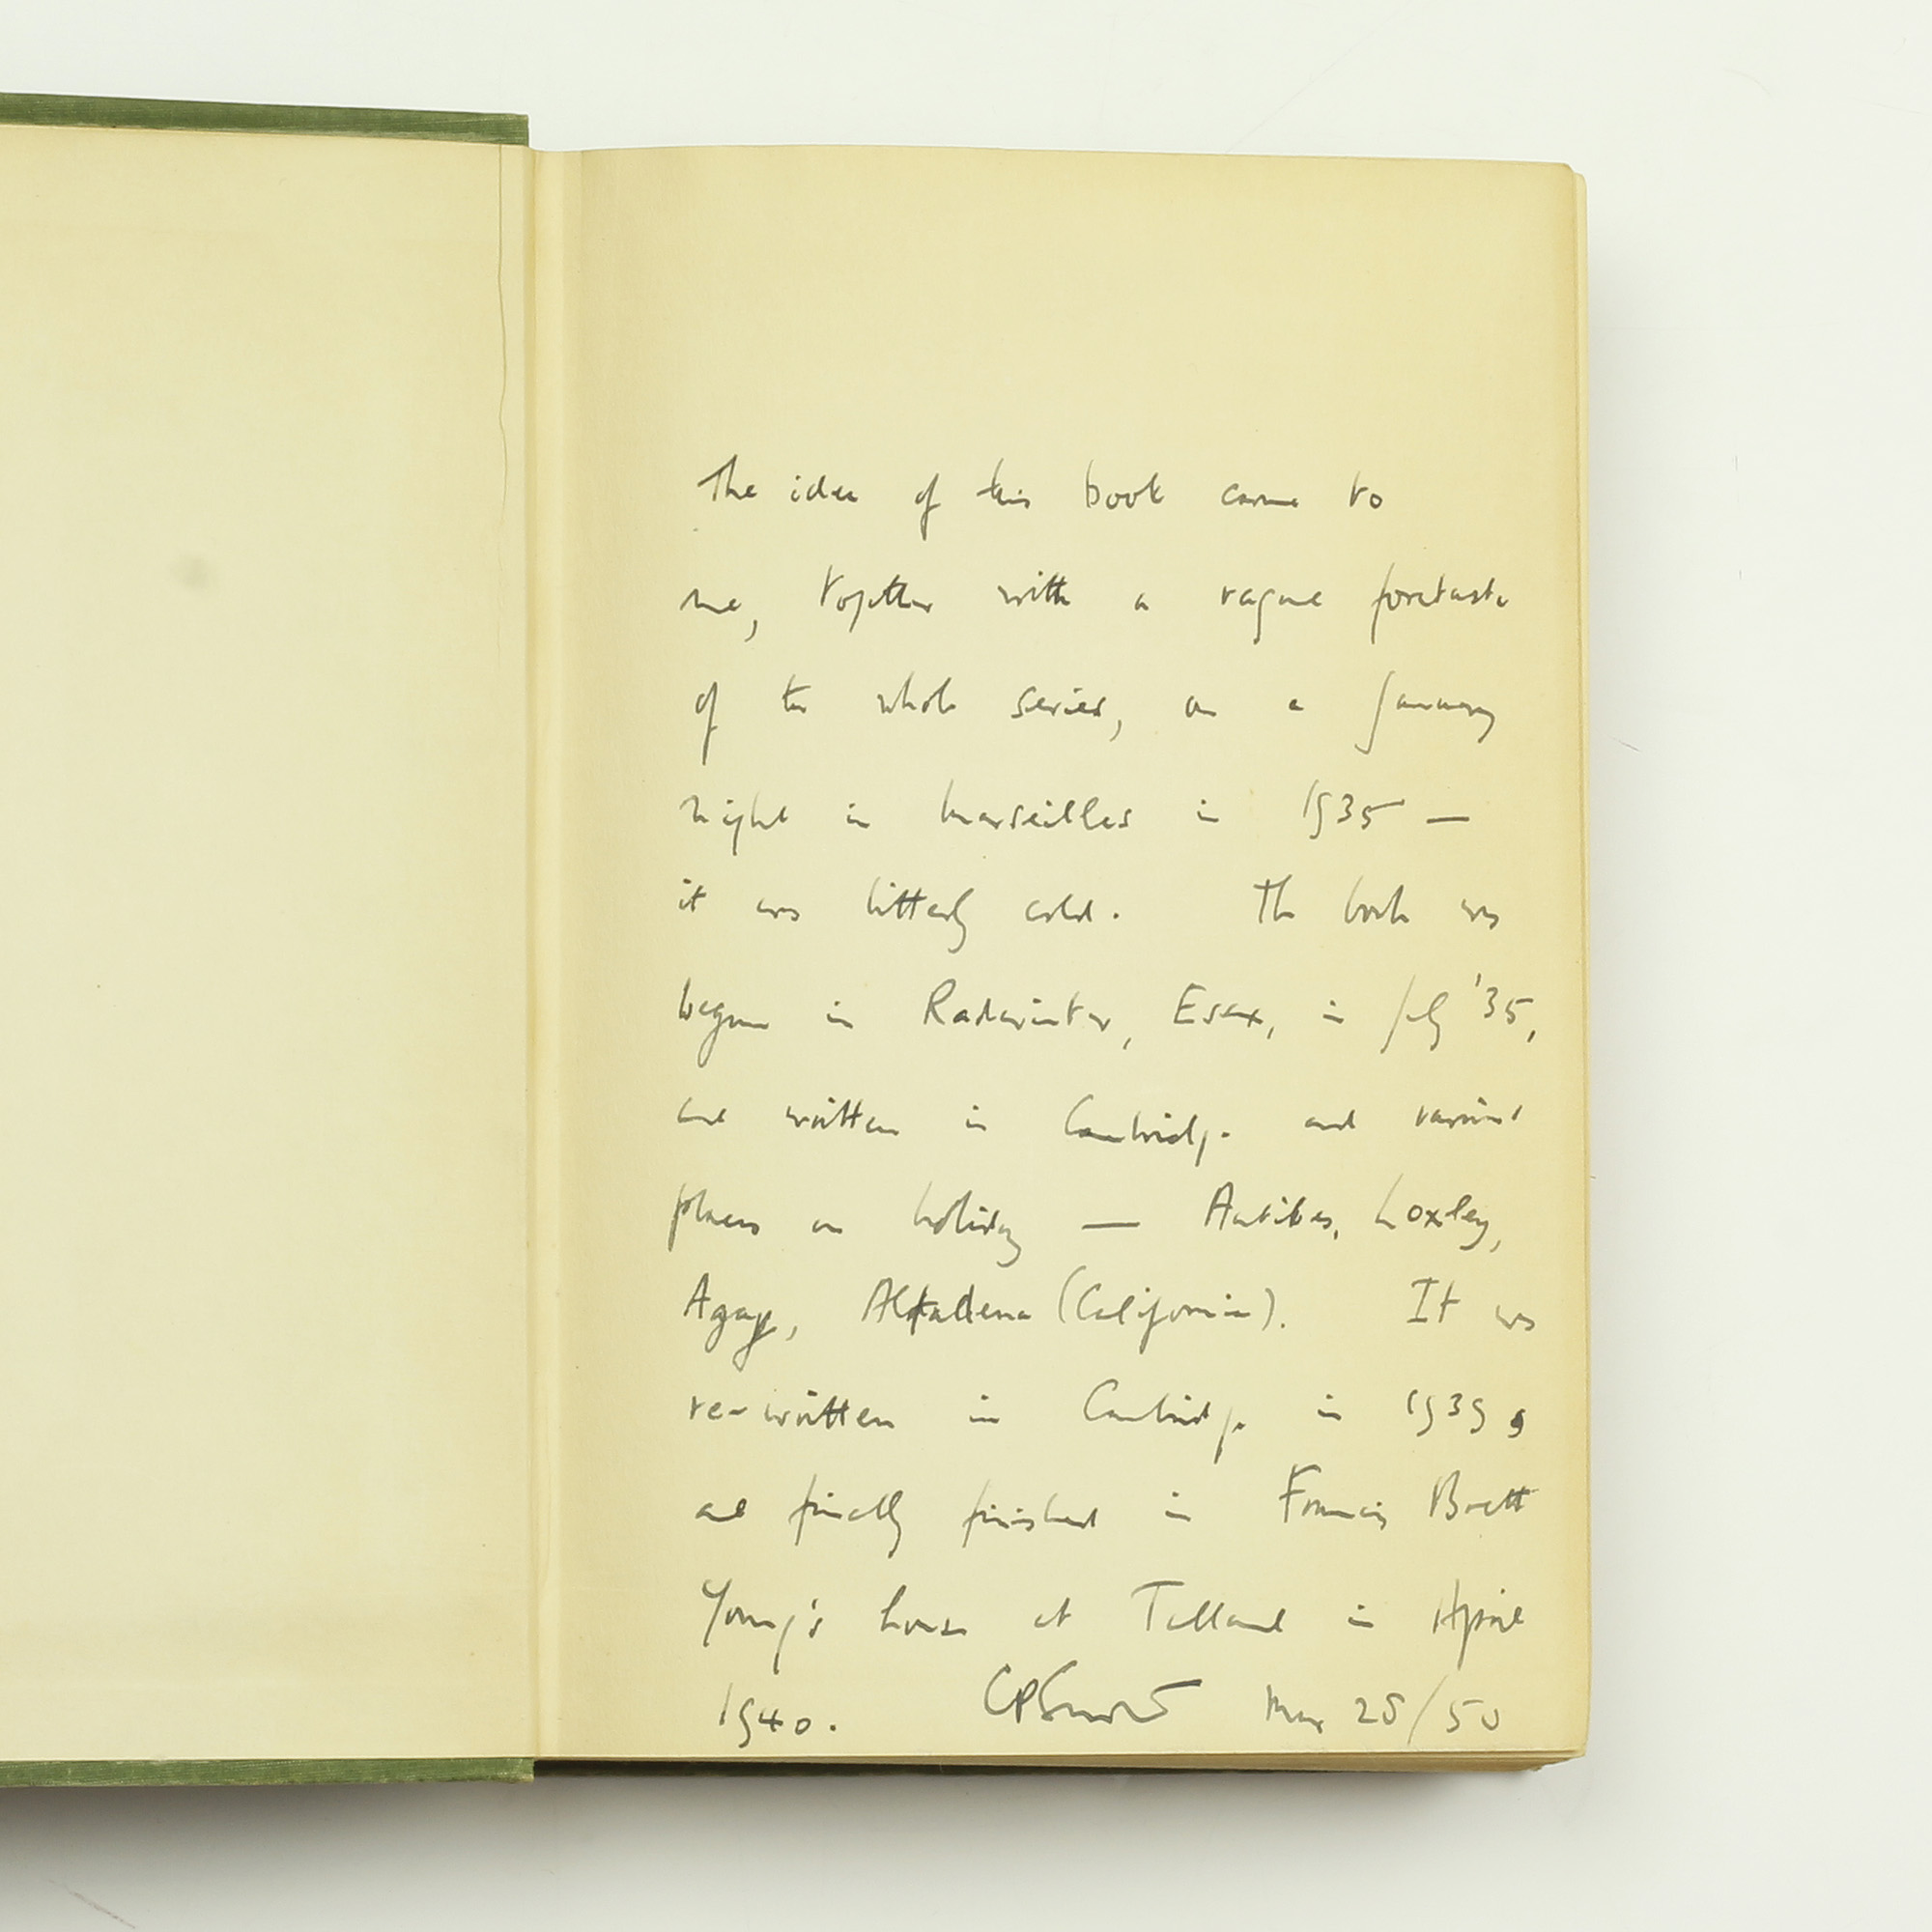 The idea of this book came to
me, together with a vague foretaste
of the whole series, on a January
night in Marseilles in 1935 —
it was bitterly cold. The book was
begun in Radwinter, Essex, in July '35,
and written in Cambridge and various
places on holiday — Antibes, Loxley,
Agay, Altadena (California). It was
re-written in Cambridge in 1939,
and finally finished in Francis Brett
Young's house at Talland in April
1940. CP Snow Mar 28/50